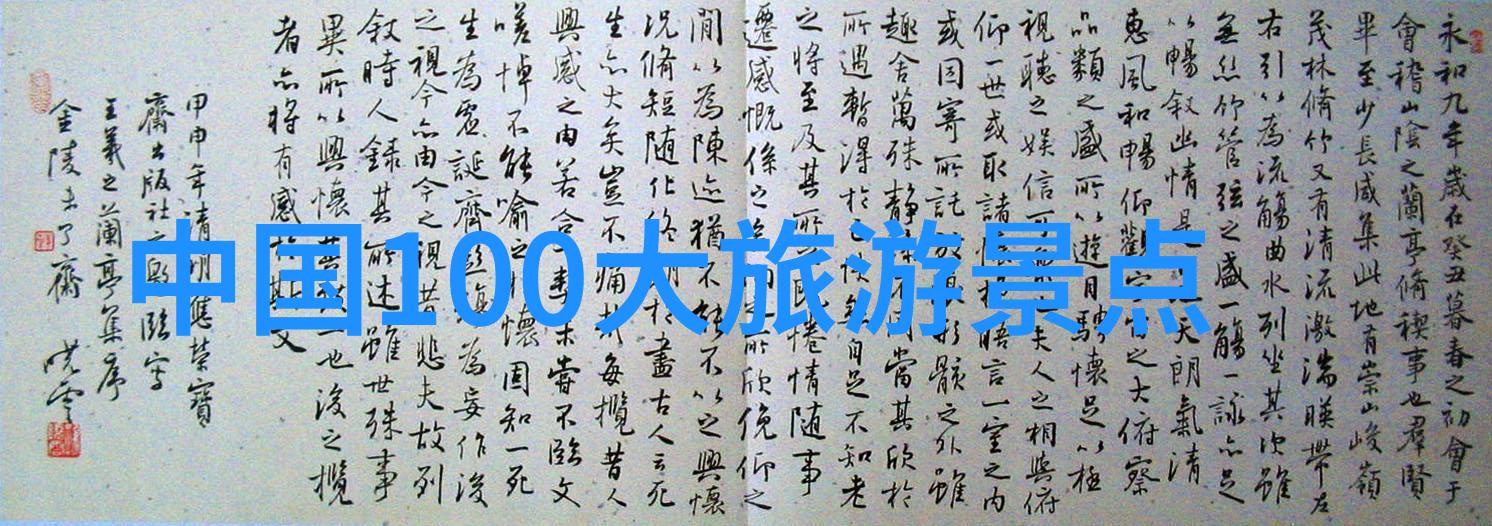 中国100大旅游景点
永和九年歲在癸丑暮春之初會于
會稽山陰之蘭亭脩稧事也群賢
畢至少長咸集此地有崇山峻嶺
茂林脩竹又有清流激湍暎帶左
右引以為流觴曲水列坐其次雖
無絲竹管弦之盛一觴一詠亦足
以暢敘幽情是日也天朗氣清
惠風和暢仰觀宇宙之大俯察
品類之盛所以遊目騁懷足以極
視聽之娛信可樂也夫人之相與俯
仰一世或取諸懷抱悟言一室之內
或因寄所託放浪形骸之外雖
趣舍萬殊靜躁不同當其欣於
所遇暫得於己快然自足不知老
之將至及其所之既惓情隨事
遷感慨係之矣向之所欣俛仰之
閒以為陳迹猶不能不以之興懷
況脩短隨化終期於盡古人云死
生亦大矣豈不痛哉每攬昔人
興感之由若合一契未嘗不臨文
嗟悼不能喻之於懷固知一死
生為虛誕齊彭殤為妄作後
之視今亦由今之視昔悲夫故列
敘時人錄其所述雖世殊事
異所以興懷其致一也後之攬
者亦將有感於斯文
甲申年清明應榮寶
齋出版社之邀臨寫
王羲之蘭亭集序
金陵未了齋